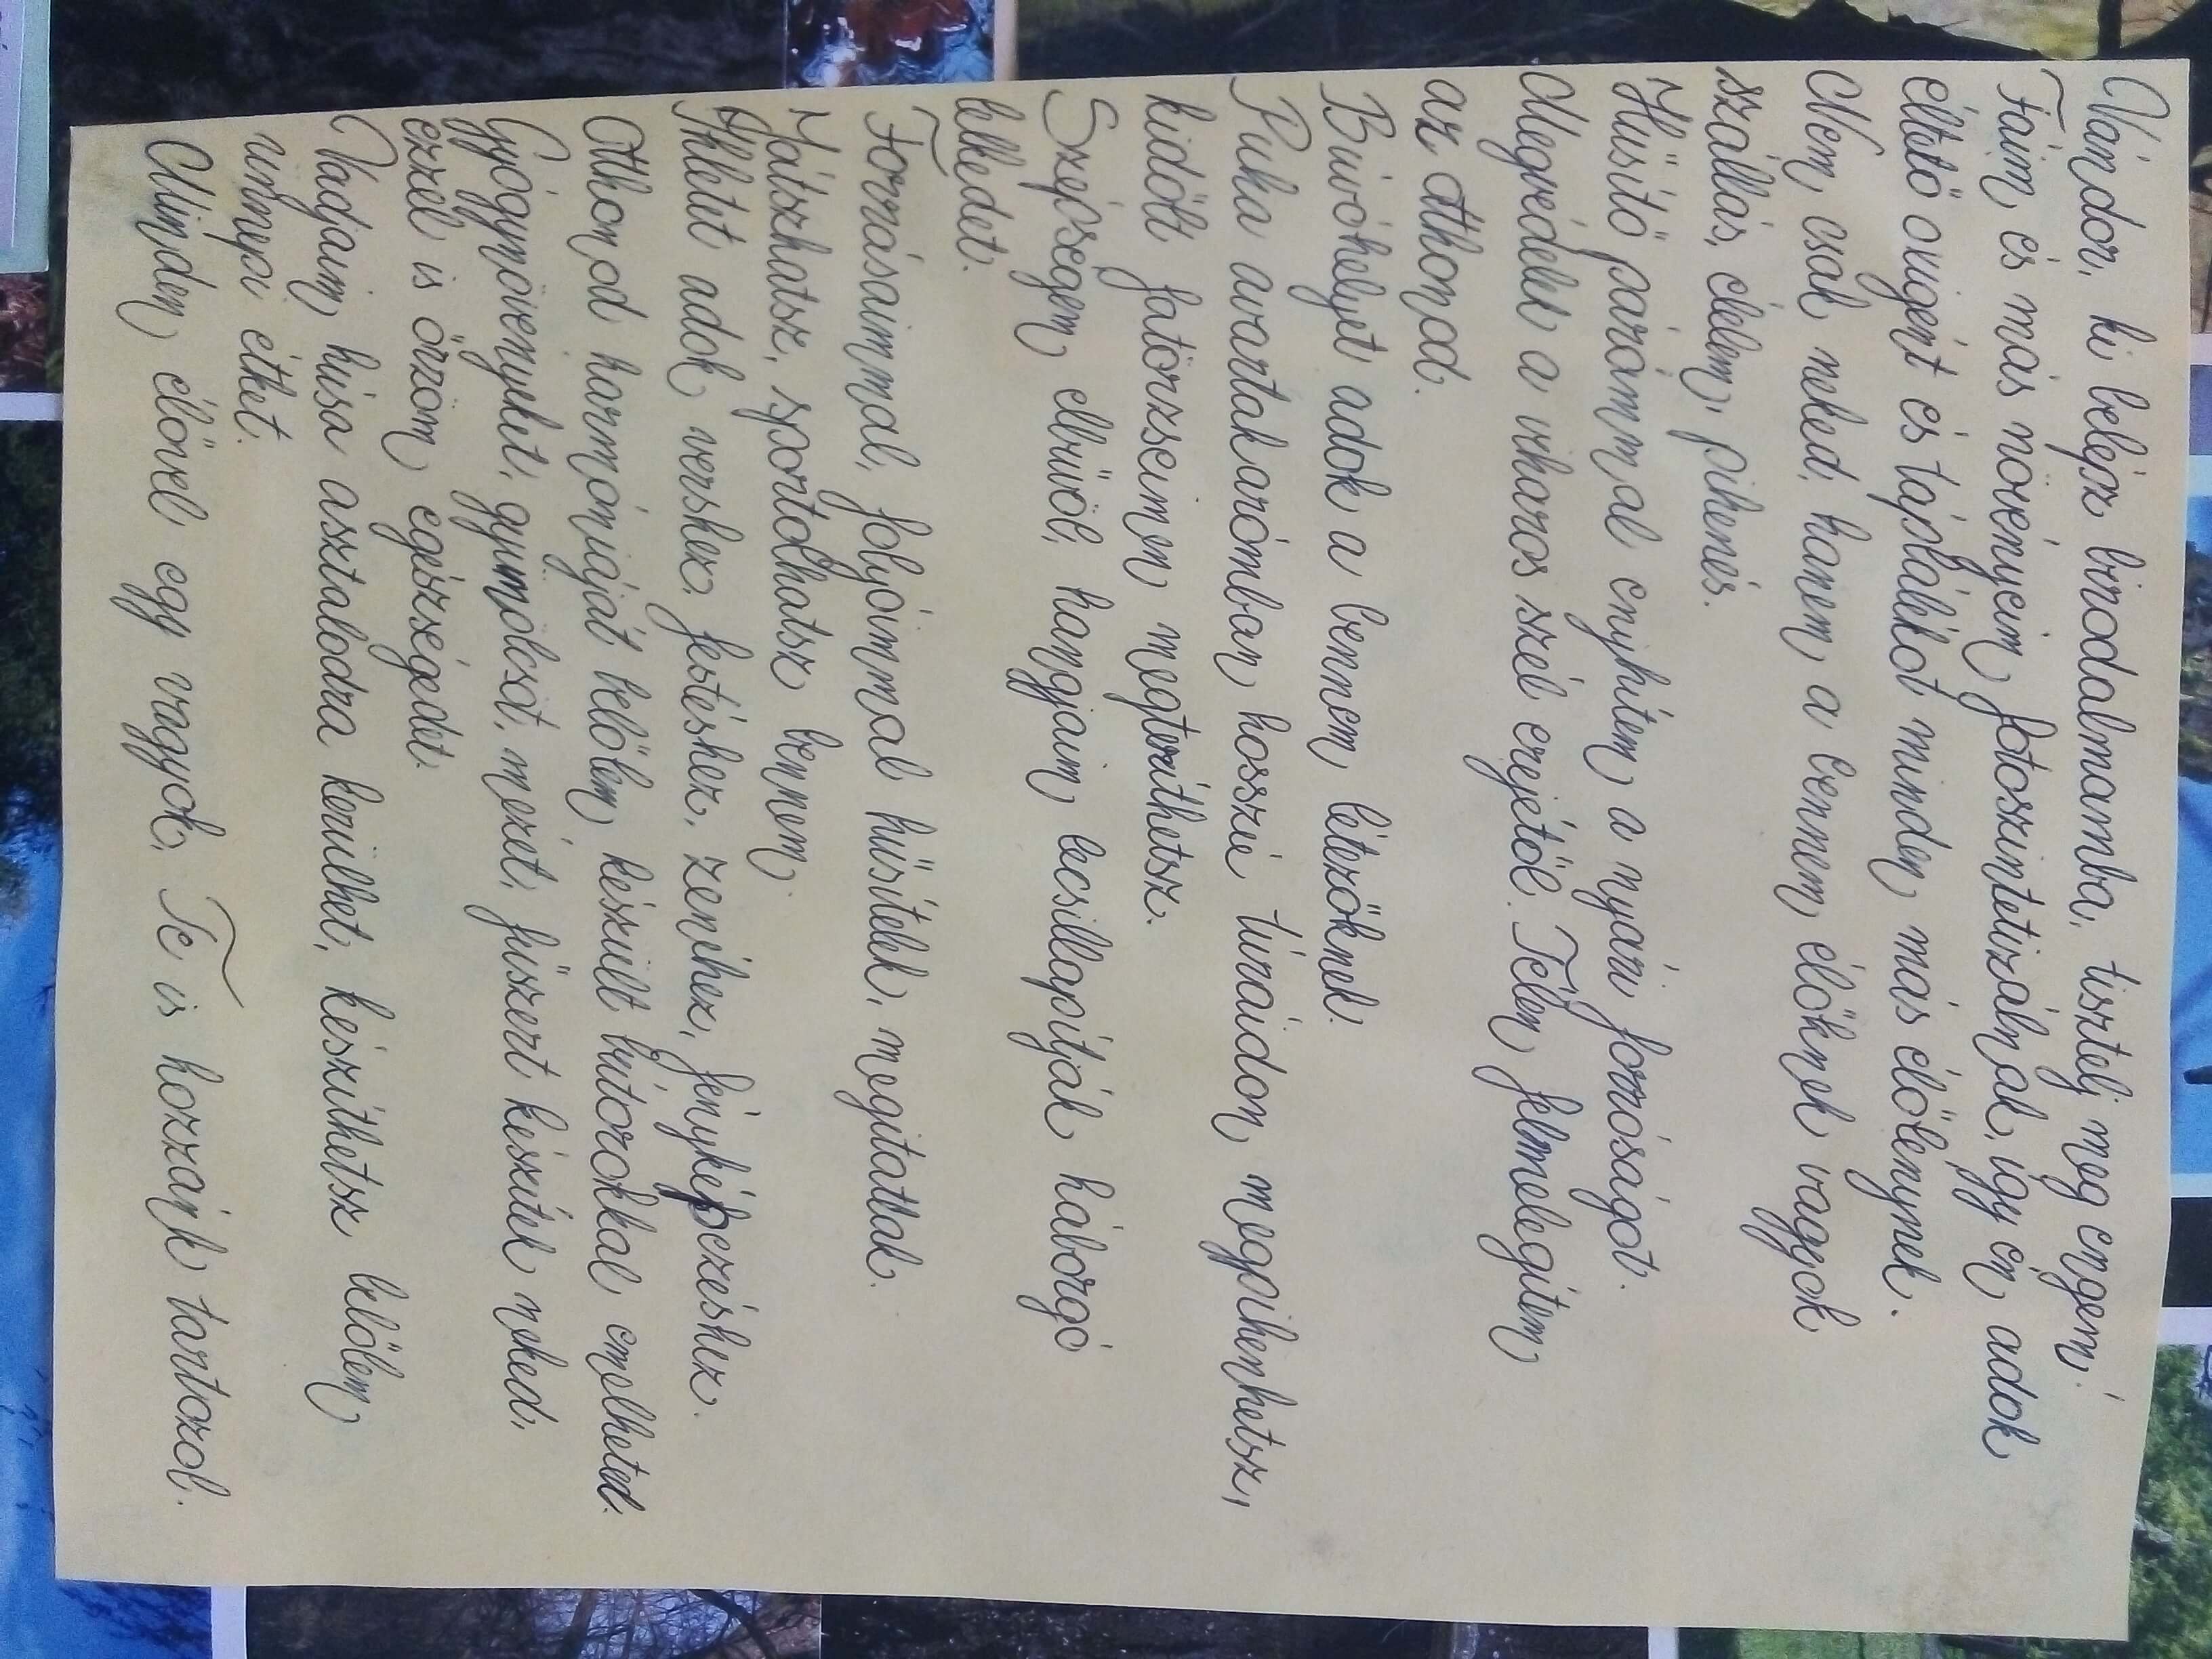 Vándor, ki belépsz birodalmamba, tisztelj meg engem!
Fáim és más növényeim fotoszintetizálnak, így én adok
éltető oxigént és táplálékot minden más élőlénynek.
Nem csak neked, hanem a bennem élőknek vagyok
szállás, élelem, pihenés.
Hűsítő párámmal enyhítem a nyári forróságot.
Megvédelek a viharos szél erejétől. Télen felmelegítem
az otthonod.
Búvóhelyet adok a bennem létezőknek.
Puha avartakarómban hosszú túráidon megpihenhetsz,
kidőlt fatörzseimen megterithetsz.
Szépségem elbűvöl, hangjaim lecsillapítják háborgó
lelkedet.
Forrásaimmal, folyóimmal hűsítelek, megitatlak.
Játszhatsz, sportolhatsz bennem.
Ihletet adok vershez, festéshez, zenéhez, fényképezéshez.
Otthonod harmóniáját belőlem készült bútorokkal emelheted.
Gyógynövényeket, gyümölcsöt, mézet, fűszert készítek neked,
ezzel is őrzöm egészségedet.
Vadjaim húsa asztalodra kerülhet, készíthetsz belőlem
ünnepi étket.
Minden élővel egy vagyok. Te is hozzánk tartozol.